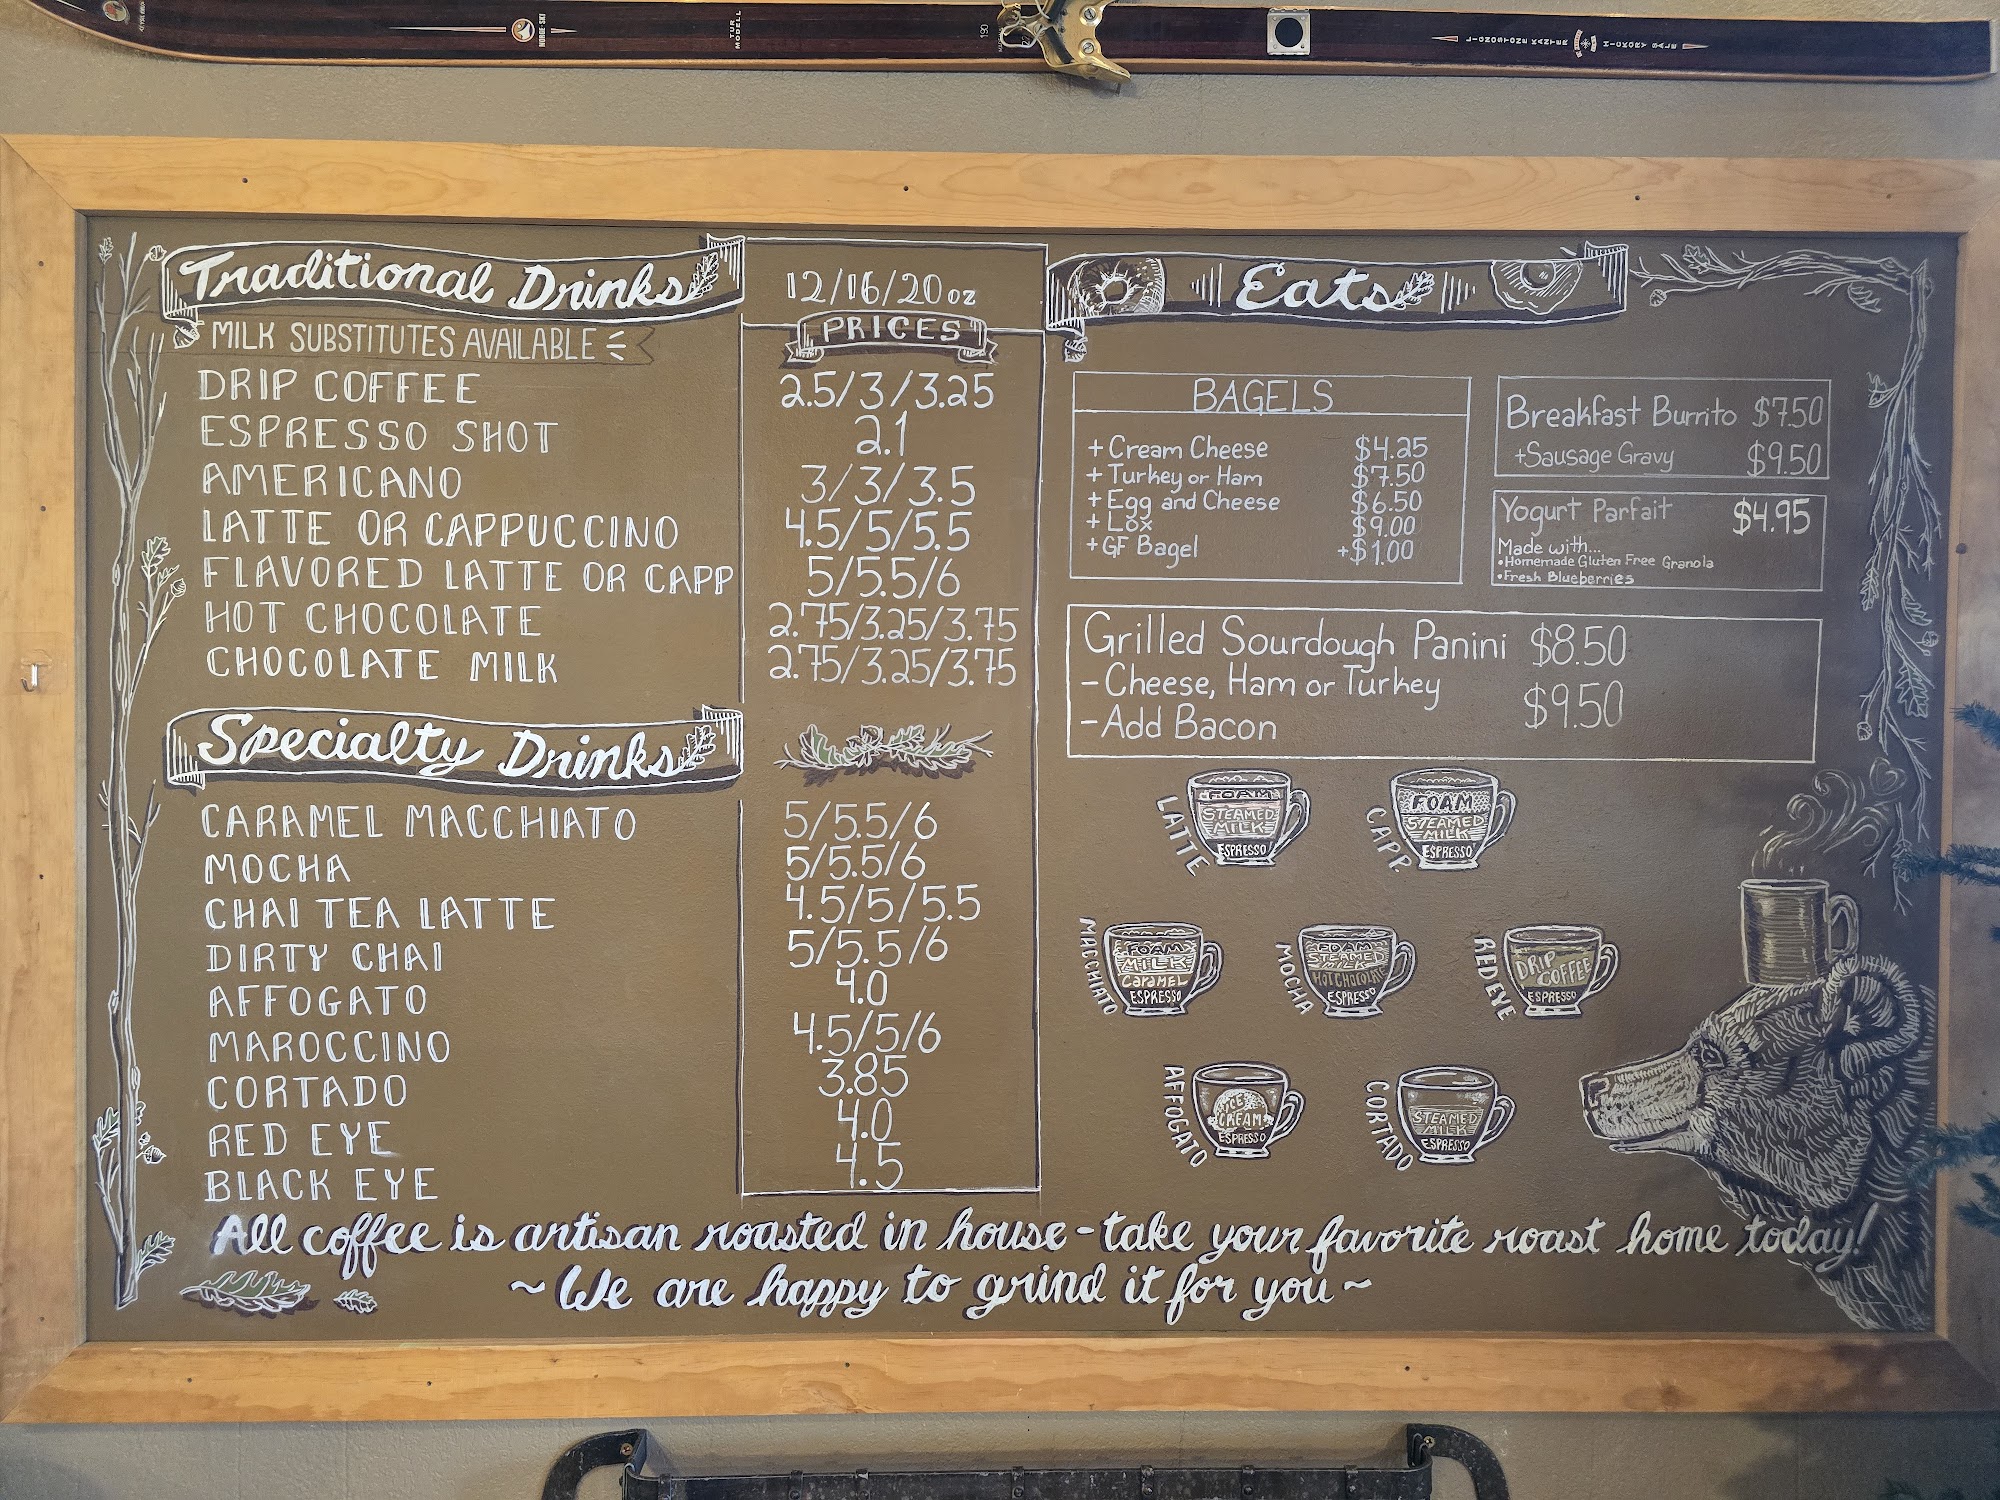 NORGE-SKI
TUR MODELL
190
LIGNOSTONE KANTER
HICKORY SALE
Traditional Drinks
12/16/20 oz
PRICES
MILK SUBSTITUTES AVAILABLE
DRIP COFFEE 2.5/3/3.25
ESPRESSO SHOT 2.1
AMERICANO 3/3/3.5
LATTE OR CAPPUCCINO 4.5/5/5.5
FLAVORED LATTE OR CAPP 5/5.5/6
HOT CHOCOLATE 2.75/3.25/3.75
CHOCOLATE MILK 2.75/3.25/3.75
Specialty Drinks
CARAMEL MACCHIATO 5/5.5/6
MOCHA 5/5.5/6
CHAI TEA LATTE 4.5/5/5.5
DIRTY CHAI 5/5.5/6
AFFOGATO 4.0
MAROCCINO 4.5/5/6
CORTADO 3.85
RED EYE 4.0
BLACK EYE 4.5
Eats
BAGELS
+ Cream Cheese $4.25
+ Turkey or Ham $7.50
+ Egg and Cheese $6.50
+ Lox $9.00
+ GF Bagel +$1.00
Breakfast Burrito $7.50
+Sausage Gravy $9.50
Yogurt Parfait $4.95
Made with...
•Homemade Gluten Free Granola
•Fresh Blueberries
Grilled Sourdough Panini $8.50
-Cheese, Ham or Turkey
-Add Bacon $9.50
LATTE
FOAM
STEAMED
MILK
ESPRESSO
CAPP.
FOAM
STEAMED
MILK
ESPRESSO
MACCHIATO
FOAM
MILK
CARAMEL
ESPRESSO
MOCHA
FOAM
STEAMED
MILK
HOT CHOCOLATE
ESPRESSO
RED EYE
DRIP
COFFEE
ESPRESSO
AFFOGATO
ICE
CREAM
ESPRESSO
CORTADO
STEAMED
MILK
ESPRESSO
All coffee is artisan roasted in house - take your favorite roast home today!
~ We are happy to grind it for you ~